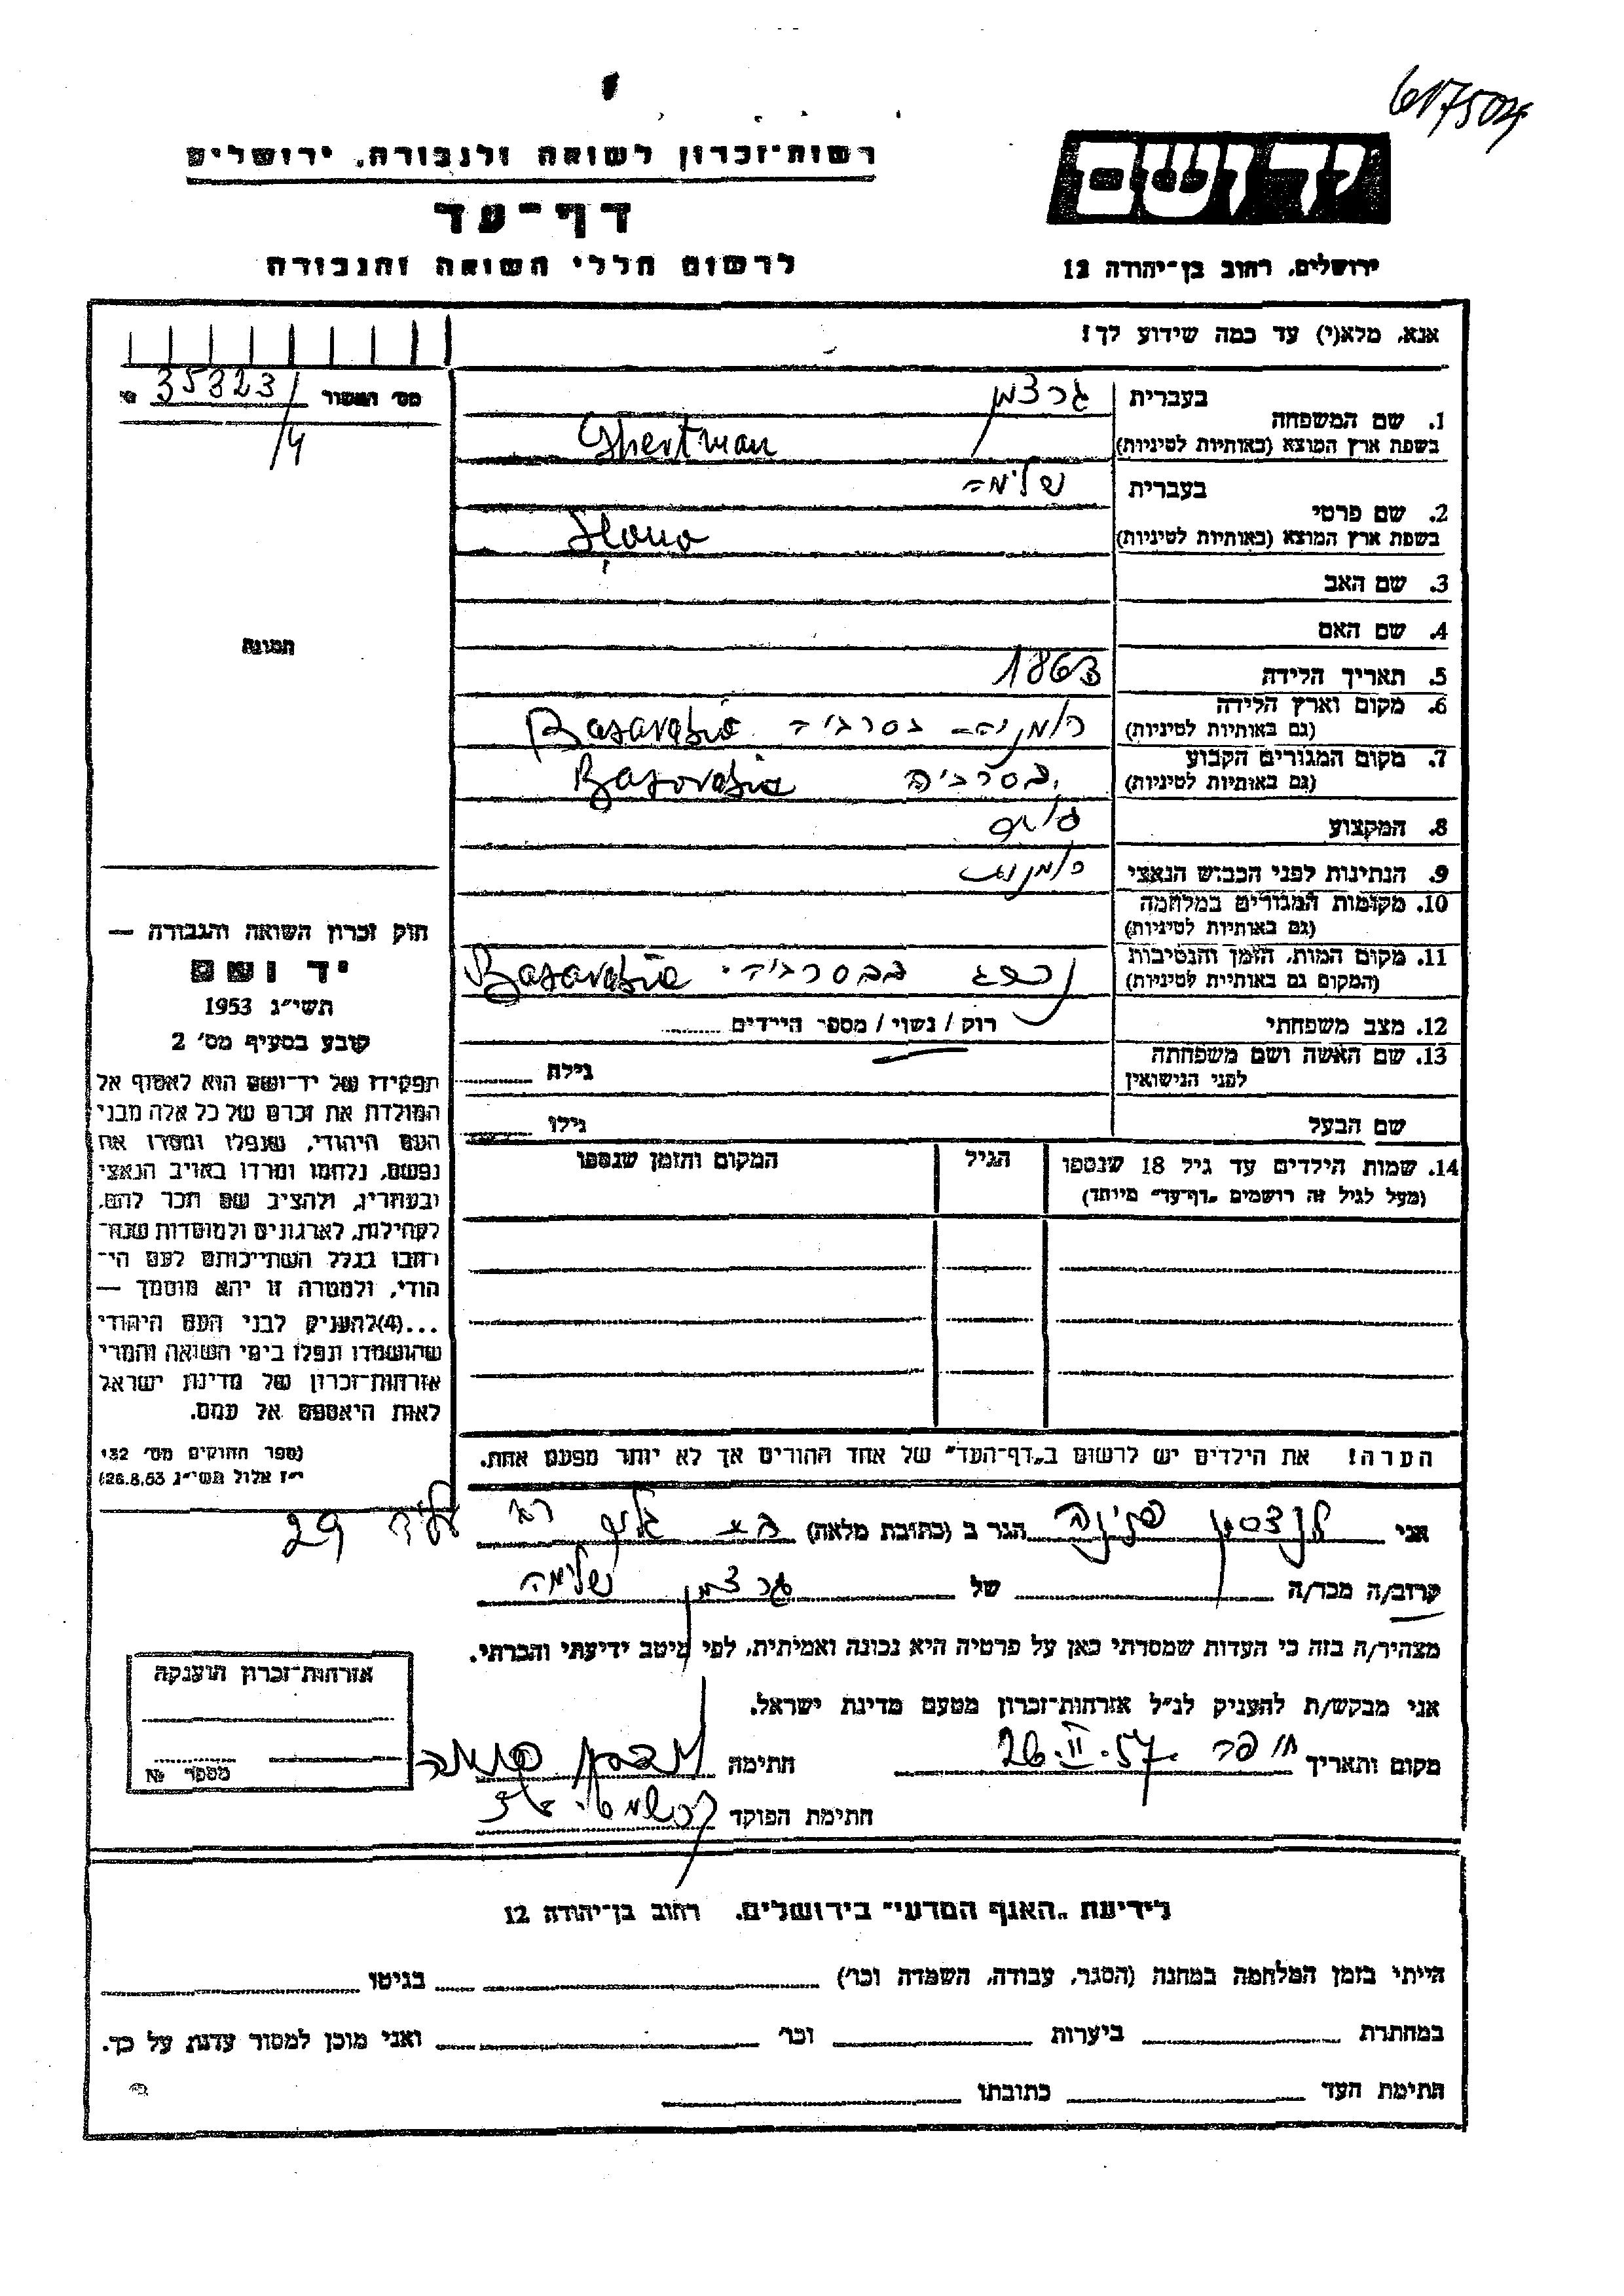 6175029
רשות־זכרון לשואה ולגבורה, ירושלים
יד ושם
דף־עד
לרשום חללי השואה והגבורה
ירושלים, רחוב בן־יהודה 12
אנא, מלא(י) עד כמה שידוע לך!
מס' השאור 35323/4
1. שם המשפחה בעברית גרצמן
בשפת ארץ המוצא (באותיות לטיניות) Ghertman
2. שם פרטי בעברית שלימה
בשפת ארץ המוצא (באותיות לטיניות)
3. שם האב
4. שם האם
תמונה
5. תאריך הלידה 1863
6. מקום וארץ הלידה רומניה - בסרביה Basarabia
(גם באותיות לטיניות)
7. מקום המגורים הקבוע בסרביה Basarabia
(גם באותיות לטיניות)
8. המקצוע
9. הנתינות לפני הכבוש הנאצי רומנית
10. מקומות המגורים במלחמה
(גם באותיות לטיניות)
11. מקום המות, הזמן והנסיבות נהרג בבסרביה Basarabia
(המקום גם באותיות לטיניות)
12. מצב משפחתי רוק / נשוי / מספר הילדים
13. שם האשה ושם משפחתה גילה
לפני הנישואין
שם הבעל גילו
14. שמות הילדים עד גיל 18 שנספו הגיל המקום והזמן שנספו
(מעל לגיל זה רושמים „דף־עד" מיוחד)
הערה! את הילדים יש לרשום ב„דף־העד" של אחד ההורים אך לא יותר מפעם אחת.
חוק זכרון השואה והגבורה —
יד ושם
תשי"ג 1953
קובע בסעיף מס' 2
תפקידו של יד־ושם הוא לאסוף אל
המולדת את זכרם של כל אלה מבני
העם היהודי, שנפלו ומסרו את
נפשם, נלחמו ומרדו באויב הנאצי
ובעוזריו, ולהציב שם וזכר להם,
לקהילות, לארגונים ולמוסדות שנח־
רבו בגלל השתייכותם לעם הי־
הודי, ולמטרה זו יהא מוסמך —
...(4) להעניק לבני העם היהודי
שהושמדו ונפלו בימי השואה והמרי
אזרחות־זכרון של מדינת ישראל
לאות היאספם אל עמם.
(ספר החוקים מס' 132
י"ז אלול תשי"ג 28.8.53)
אני לנדסמן פנינה הגר ב (כתובת מלאה) 29
קרוב/ה מכר/ה של גרצמן שלימה
מצהיר/ה בזה כי העדות שמסרתי כאן על פרטיה היא נכונה ואמיתית, לפי מיטב ידיעתי והכרתי.
אני מבקש/ת להעניק לנ"ל אזרחות־זכרון מטעם מדינת ישראל.
מקום והתאריך 26.II.57 חתימה
חתימת הפוקד
אזרחות־זכרון הוענקה
מספר №
לידיעת „האגף המדעי" בירושלים, רחוב בן־יהודה 12
הייתי בזמן המלחמה במחנה (הסגר, עבודה, השמדה וכו') בגיטו
במחתרת ביערות וכו' ואני מוכן למסור עדות על כך.
חתימת העד כתובתו